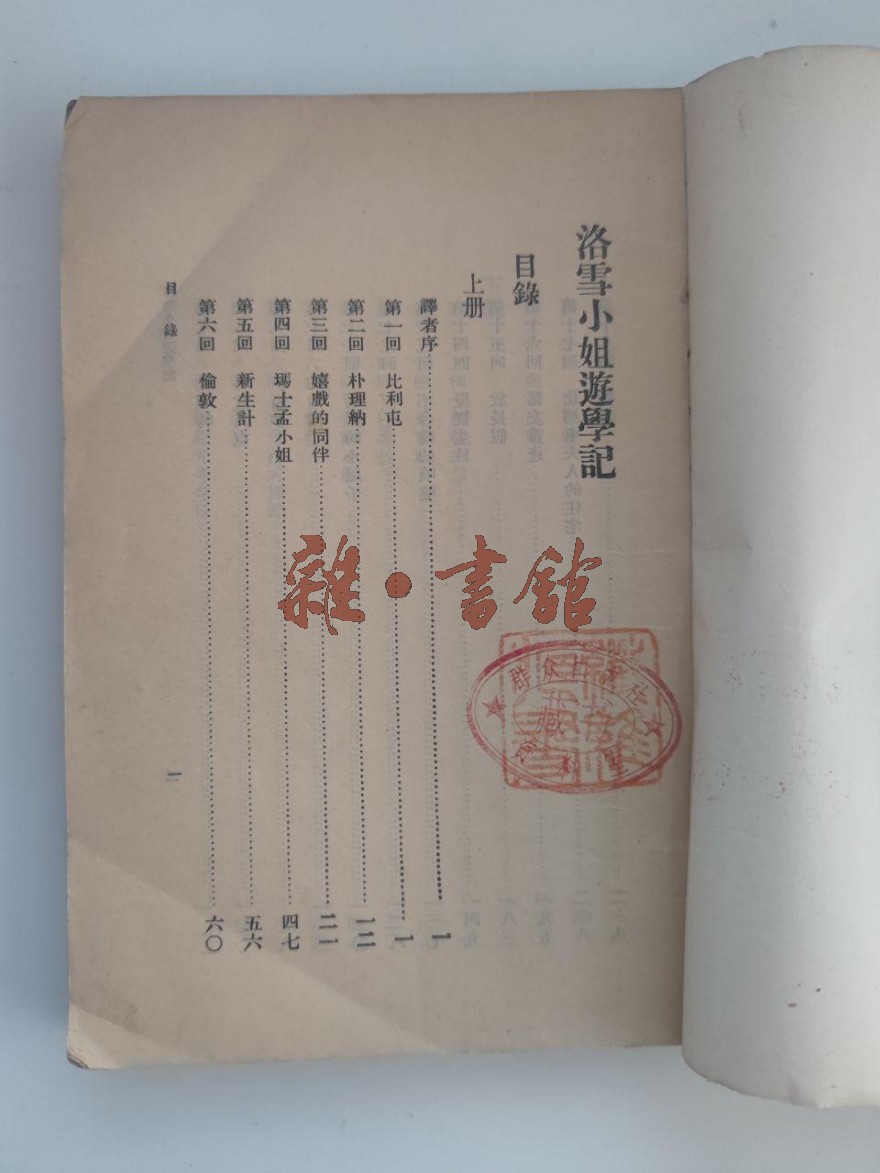 洛雪小姐遊學記
目錄
上册
譯者序……一
第一回 比利屯……一
第二回 朴理納……一二
第三回 嬉戲的同伴……二一
第四回 瑪士孟小姐……四七
第五回 新生計……五六
第六回 倫敦……六〇
目錄
一
雜·書舘
群众出版社
資料室